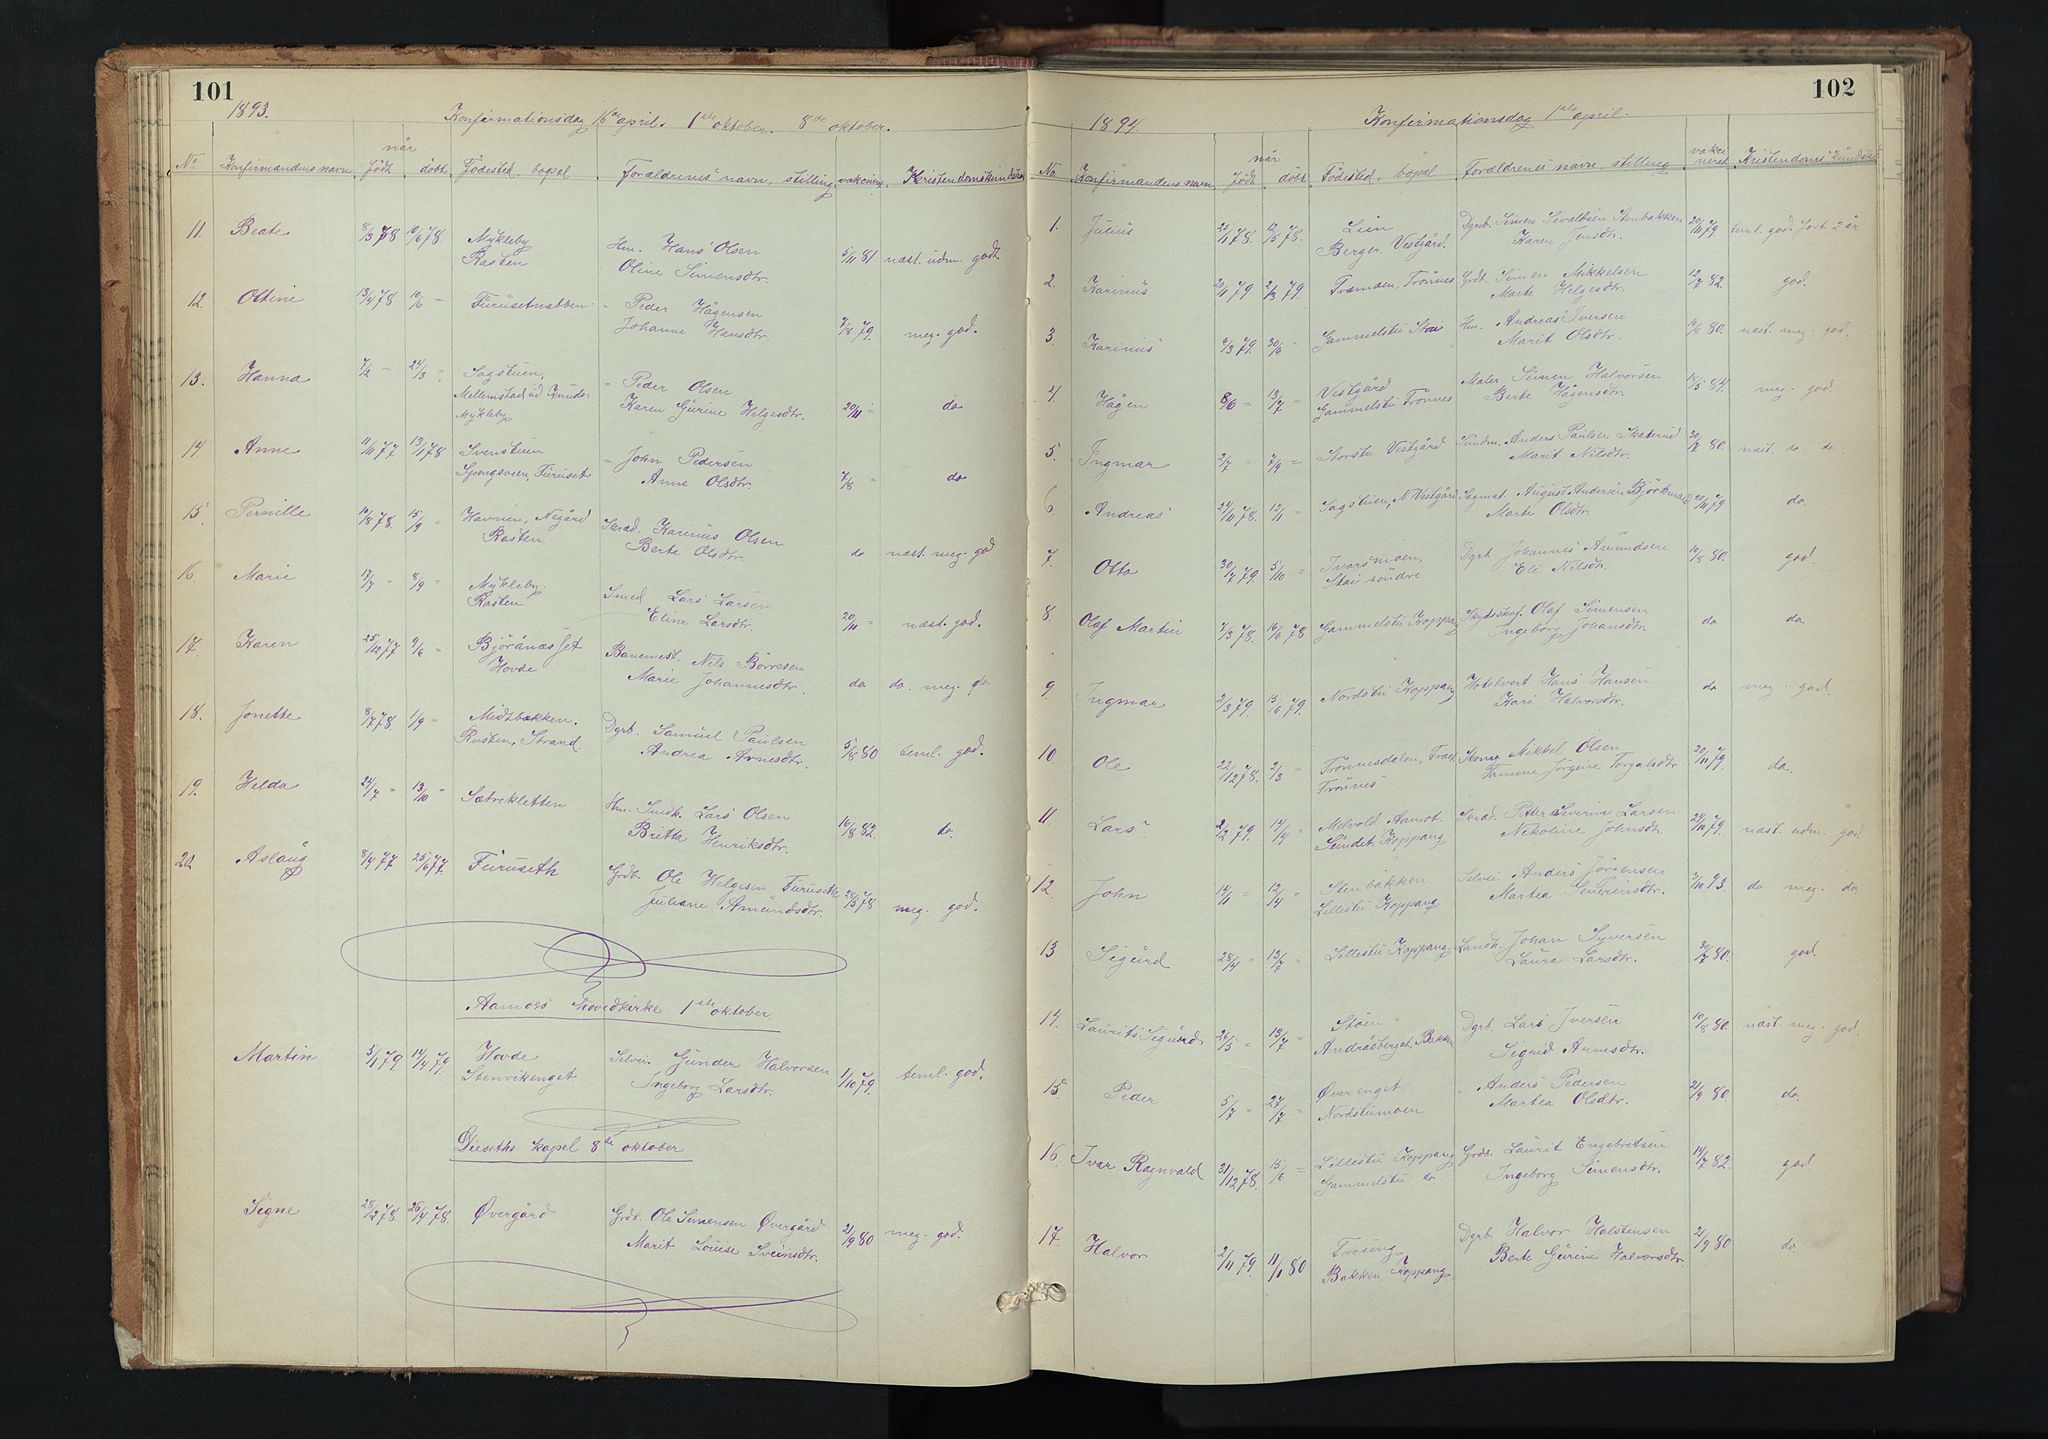 101
1893.
Konfirmationsdag 16de april. 1ste oktober. 8de oktober.
No Konfirmandens navn når født døbt Fødested, bopæl Forældrenes navn, stilling vaksinering. Kristendomskundskab
11. Beate 8/3 78 10/6 78 Mykleby Hm. Hans Olsen
Rasten Oline Simensdtr. 5/11 81 næst. udm. godt.
12. Oltine 13/4 78 10/6 = Furusetnabben = Peder Hågensen
Johanne Hansdtr. 7/8 79. meg. god.
13. Hanna 7/2 = 24/3 = Sagstuen, = Peder Olsen
Mellemstad ud Knuds- Karen Gurine Helgesdtr. 20/11 = do
Mykleby
14. Anne 11/11 77 13/1 78 Svenstuen = John Pedersen
Spongsveen, Furuset Anne Olsdtr. 7/8 = do
15. Pernille 10/8 78 15/9 = Havnin, Negård Skræd. Karinus Olsen
Rasten. Berte Olsdtr. do næst. meg. god
16. Marie 17/7 = 8/9 = Mykleby. Smed Lars Larsen
Rasten Eline Larsdtr. 20/11 = næst. god.
17. Karen 25/12 77 9/6 = Bjøråneset Banemest. Nils Børresen
Hovde Marie Johannesdtr. do do. meg. do
18. Jonette 8/7 78. 1/9 = Midtbakken. Dgrb. Samuel Paulsen
Rasten, Strand. Andrea Arnesdtr. 5/8 80 teml. god.
19. Helda 24/7 = 13/10 = Sætrekletten Hm. Smdk. Lars Olsen
Brithe Henriksdtr. 16/8 82. do.
20 Aslaug 8/4 77 25/6 77. Furuseth Grdb. Ole Helgesen Furuseth
Juliane Amundsdtr. 24/5 78 meg. god.
Aamots hovedkirke 1ste oktober
Martin 5/1 79 14/4 79. Hovde Selvei. Gunder Halvorsen
Stenvikenget Ingeborg Larsdtr. 1/10 79. teml. god.
Diseths kapel 8de oktober
Signe 28/2 78. 26/4 78. Øvergård Grdb. Ole Simensen Øvergård
Marit Louise Sveinsdtr. 21/9 80 meg. god.
102
1894. Konfirmationsdag 1ste april.
No. Konfirmandens navn når født døbt Fødested, bopæl Forældrenes navn, stilling vakcineret Kristendoms kundskab
1. Julius 25/1 78. 12/5 78. Lien Dgrb. Simen Sevaldsen Stenbakken 20/11 79 teml. god. fort. 2 år
Berger, Vestgård. Karen Jensdtr.
2. Karinus 20/1 79 2/3 79. Framden, Trønnes Grdb. Simen Mikkelsen 12/7 82. god.
Marte Helgesdtr.
3. Karinus 9/3 79. 30/6 = Gammelstu Stai Hm. Andreas Iversen 9/8 80. næst. meg. god.
Marit Olsdtr.
4. Hågen 8/6 = 13/7 = Vestgård Maler Simen Halvorsen 18/5 84. meg. god
Gammelstu Trønnes Berte Hågensdtr.
5. Ingmar 2/7 = 7/9 = Storstu Vestgård Tundm. Anders Paulsen Skaterud 30/7 80. næst. do. do.
Marit Nilsdtr.
6 Andreas 24/11 78. 12/1 = Sagstuen, N Vestgård Sagmst. August Andersen Björkmand 20/11 79 do.
Marte Olsdtr.
7. Otto 30/7 79. 5/10 = Ivarsmoen, Dgrb Johannes Amundsen 10/8 80. god.
Stai søndre Eli Nilsdtr.
8. Olaf Martin 7/3 78. 16/6 78 Gammelstu Koppang Skydsskaf. Olaf Simensen do do
Ingeborg Johansdtr.
9. Ingmar 2/3 79. 15/6 79. Nordstu Koppang Hotelvert Hans Hansen do meg. god.
Kari Halvorsdtr.
10. Ole 22/12 78. 2/3 = Trønnesdalen, Skomag. Mikkel Olsen 20/11 79. do.
Trønnes Jørgine Torgalsdtr
11. Lars 2/2 79. 14/4 = Melvold Aamot. Skræd. Petter Severin Larsen 24/10 79. næst. udm. god.
Sundet, Koppang Nikoline Johnsdtr.
12. John 14/1 = 12/4 = Stenbakken Selvei. Anders Jörgensen 3/10 93. do meg. do
Lillestu Koppang Martea Severinsdtr.
13 Sigurd 28/4 = 13/7 = Lillestu Koppang Landh. Johan Syversen 30/7 80. god.
Laura Larsdtr.
14. Laurits Sigurd 26/5 = 13/7 = Støen Dgrb. Lars Iversen 10/8 80. næst. meg. god.
Andråsberget, Bakken Sigrid Arnesdtr.
15. Peder 5/7 = 27/7 = Øverenget " Anders Pedersen 21/9 80. do.
Nordstumoen Martea Olsdtr.
16 Ivar Ragnvald 31/12 78. 15/6 = Lillestu Koppang Grdb. Laurit Engebretsen 14/7 82. god
Gammelstu do. Ingeborg Simensdtr.
17. Halvor 2/11 79. 11/1 80 Treseng Dgrb. Halvor Halstensen 21/9 80 do.
Bakken, Koppang Berte Gurine Halvorsdtr.